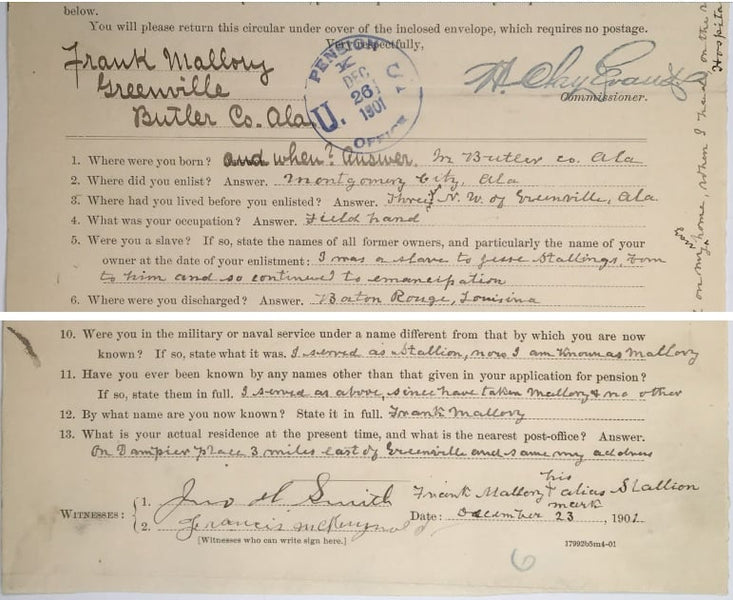 below.
You will please return this circular under cover of the inclosed envelope, which requires no postage.
Very respectfully,
Frank Mallory
Greenville
Butler Co. Ala
U. S. PENSION OFFICE
DEC
26
1901
Commissioner.
1. Where were you born? and when? Answer. In Butler co. Ala
2. Where did you enlist? Answer. Montgomery City, Ala
3. Where had you lived before you enlisted? Answer. Three N. W. of Greenville, Ala.
4. What was your occupation? Answer. Field hand
5. Were you a slave? If so, state the names of all former owners, and particularly the name of your
owner at the date of your enlistment: I was a slave to Jesse Stallings, born
to him and so continued to emancipation
6. Where were you discharged? Answer. Baton Rouge, Louisina
on my home, when I
Hospita
10. Were you in the military or naval service under a name different from that by which you are now
known? If so, state what it was. I served as Stallion, now I am known as Mallory
11. Have you ever been known by any names other than that given in your application for pension?
If so, state them in full. I served as above, since have taken Mallory & no other
12. By what name are you now known? State it in full. Frank Mallory
13. What is your actual residence at the present time, and what is the nearest post-office? Answer.
On Dampier place 3 miles east of Greenville and same my address
WITNESSES:
1. Jno H Smith
2. Francis
[Witnesses who can write sign here.]
his
Frank Mallory + alias Stallion
mark
Date: December 23, 1901.
17992b5m4-01
6